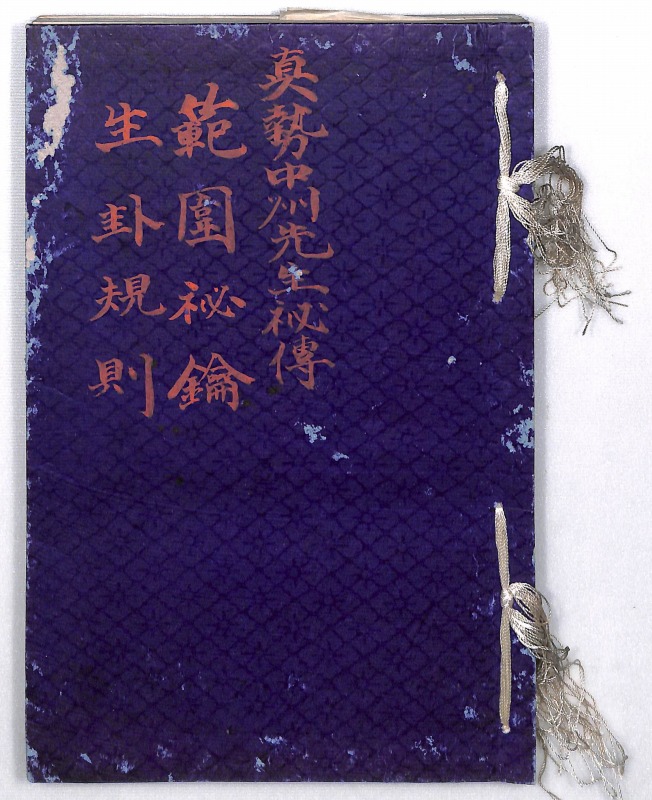 真勢中州先生祕傳
範圍祕鑰
生卦規則